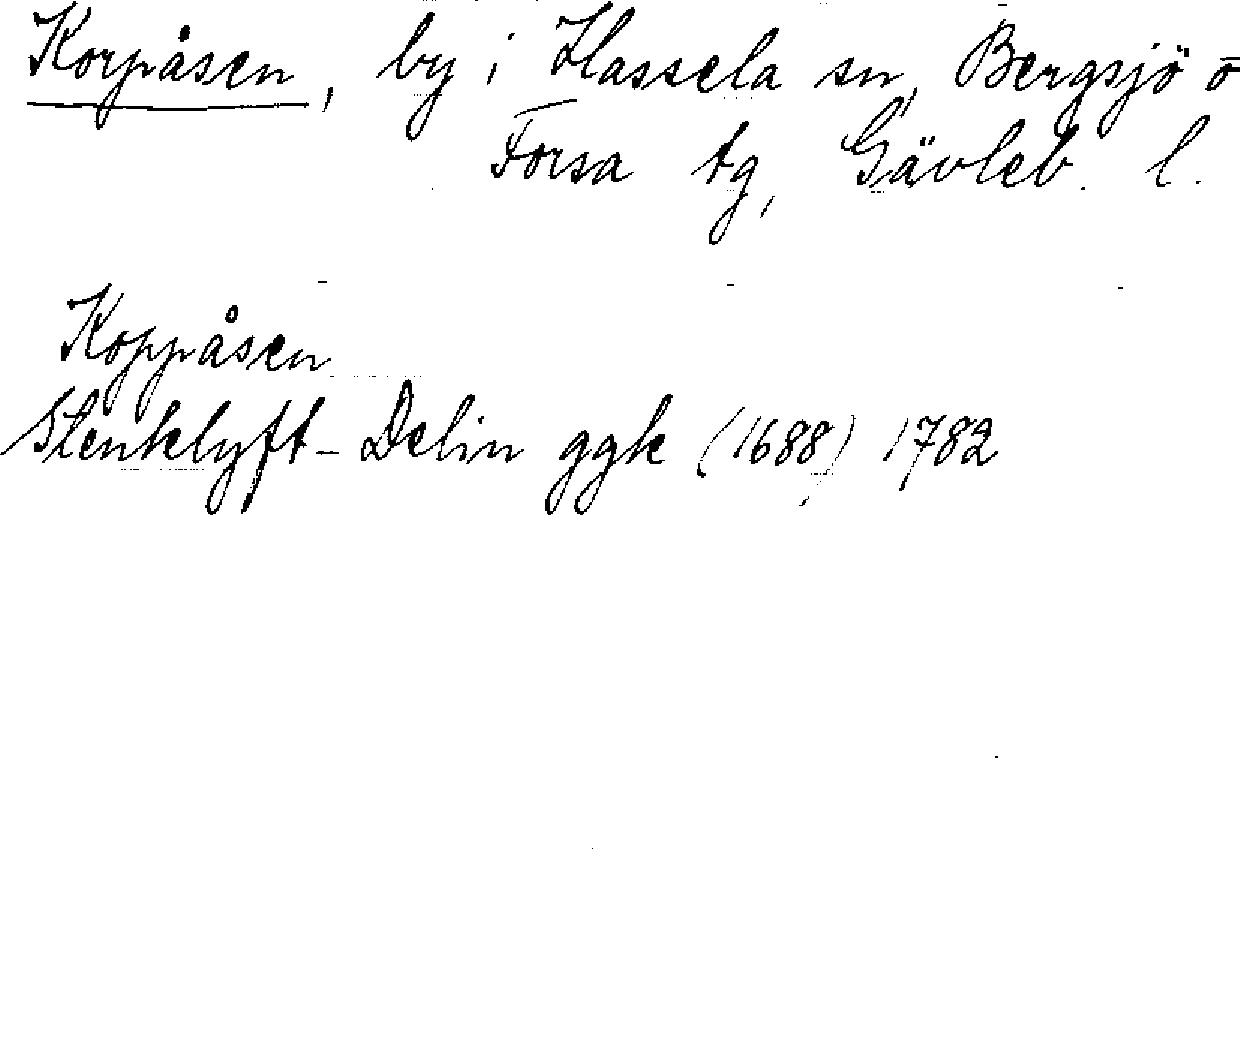 Korpåsen, by i Hassela sn, Bergsjö o
Forsa tg, Gävleb. l.
Koppåsen
Stenklyft-Delin ggk (1688) 1782